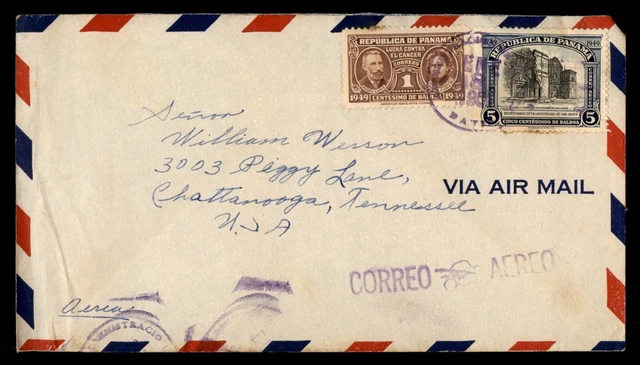 REPÚBLICA DE PANAMÁ
LUCHA CONTRA
EL CANCER
CORREOS
1
1949 CENTÉSIMO DE BALBOA 1949
REPÚBLICA DE PANAMÁ
1949
5 CINCO CENTÉSIMOS DE BALBOA 5
Señor
William Wesson
3003 Peggy Lane,
Chattanooga, Tennessee
USA
VIA AIR MAIL
CORREO AEREO
Aereo